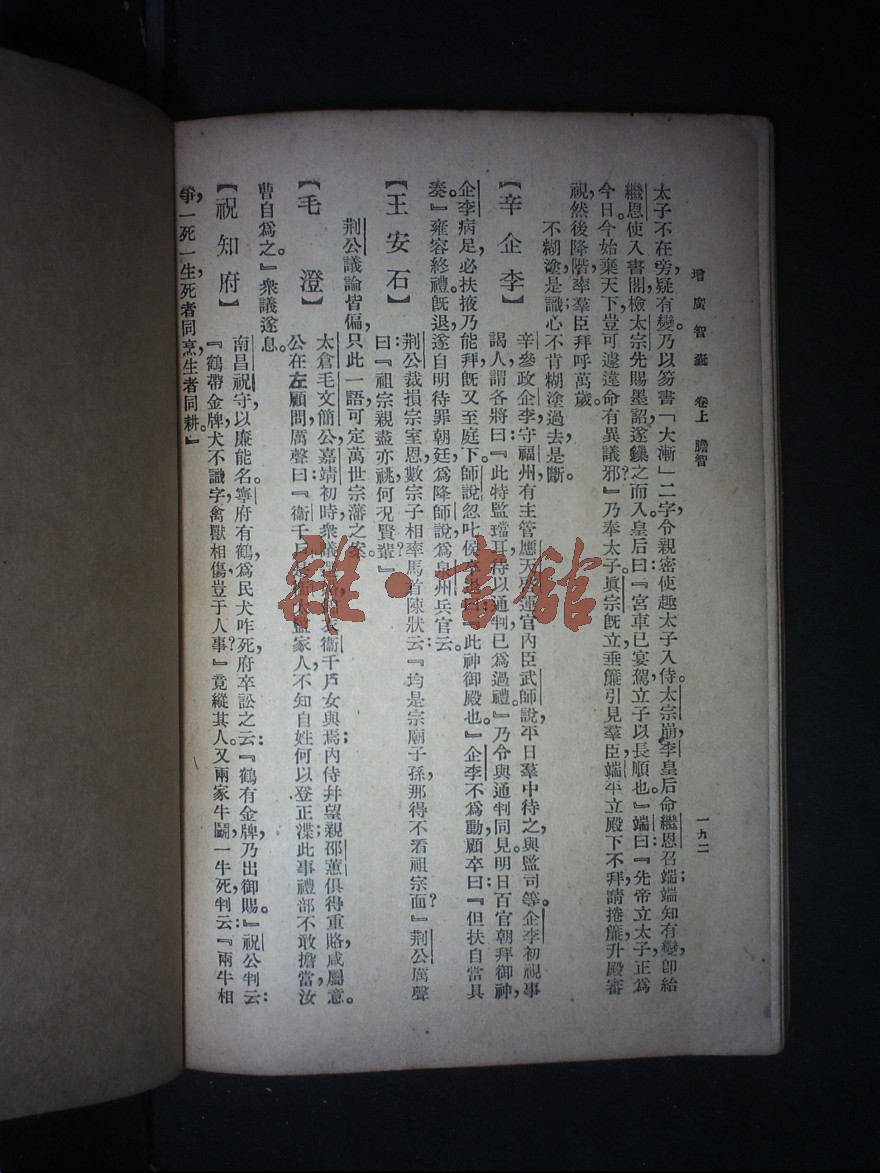 增廣智囊 卷上 膽智
一九二
太子不在旁，疑有變。乃以笏書「大漸」二字，令親密使趣太子入侍。太宗崩，李皇后命繼恩召端；端知有變，卽紿
繼恩，使入書閣檢太宗先賜墨詔，遂鏁之而入。皇后曰：『宮車已宴駕，立子以長，順也。』端曰：『先帝立太子，正爲
今日。今始棄天下，豈可遽違命有異議邪？』乃奉太子。眞宗旣立，垂簾引見羣臣，端平立殿下不拜，請捲簾升殿審
視，然後降階，率羣臣拜呼萬歲。
不糊塗是識，心不肯糊塗過去是斷。
【辛企李】
辛參政企李守福州，有主管應天啓運宮內臣武師說，平日羣中待之，與監司等。企李初視事，
謁人謂各將曰：『此特監璫耳，待以通判，已爲過禮。』乃令與通判同見。明日百官朝拜御神，
企李病足，必扶掖乃能拜。旣又至庭下，師說忽叱侯卒退，曰：『此神御殿也。』企李不爲動，顧卒曰：『但扶，自當具
奏。』雍容終禮。旣退，遂自明待罪。朝廷爲降師說，爲泉州兵官云。
【王安石】
荆公裁損宗室恩，數宗子相率馬首陳狀云：『均是宗廟子孫，那得不看祖宗面？』荆公厲聲
曰：『祖宗親盡亦祧，何況賢輩？』
荆公議論皆偏，只此一語，可定萬世宗藩之案。
【毛 澄】
太倉毛文簡公，嘉靖初時衆議 衣衞千戶女與焉；內侍幷望親邵蕙俱得重賂，咸屬意。
公在左顧問，厲聲曰：『衞千戶是 太監家人，不知自姓，何以登正渫；此事禮部不敢擔當，汝
曹自爲之。』衆議遂息。
【祝知府】
南昌祝守以廉能名。寧府有鶴，爲民犬咋死，府卒訟之云：『鶴有金牌，乃出御賜。』祝公判云：
『鶴帶金牌，犬不識字；禽獸相傷，豈于人事？』竟縱其人。又兩家牛鬭，一牛死，判云：『兩牛相
爭，一死一生；死者同烹，生者同耕。』
雜·書館